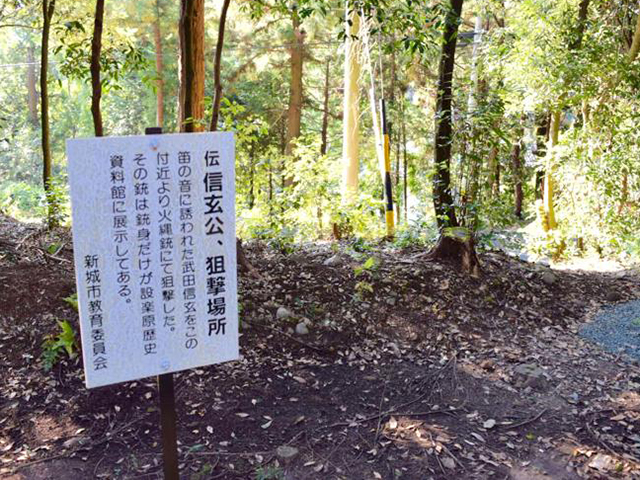 伝 信玄公、狙撃場所
笛の音に誘われた武田信玄をこの
付近より火縄銃にて狙撃した。
その銃は銃身だけが設楽原歴史
資料館に展示してある。
新城市教育委員会